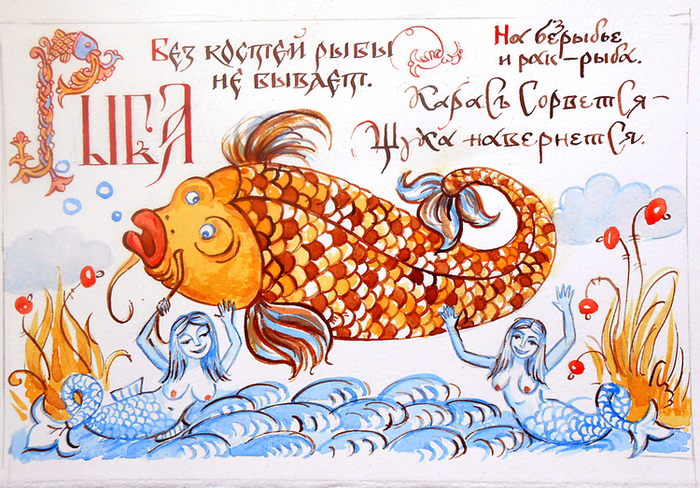 Рыбка
Без костей рыбы
не бывает.
На безрыбье
и рак – рыба.
Карась Сорвется –
Щука навернется.